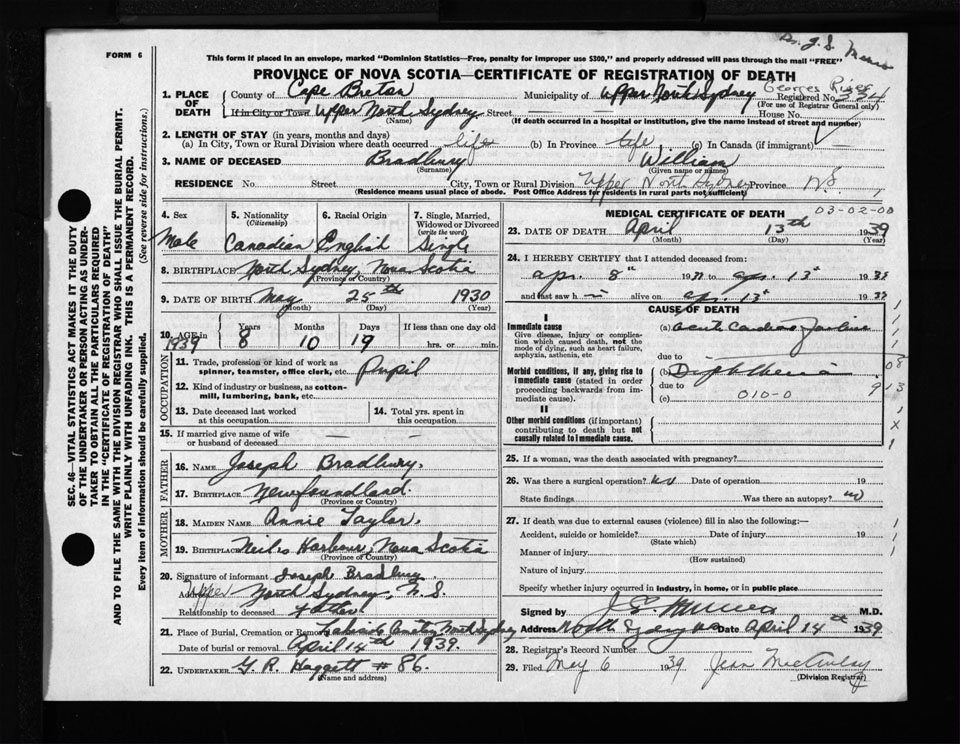 FORM 6
This form if placed in an envelope, marked "Dominion Statistics—Free, penalty for improper use $300," and properly addressed will pass through the mail "FREE"
PROVINCE OF NOVA SCOTIA—CERTIFICATE OF REGISTRATION OF DEATH
Georges River
1. PLACE OF DEATH County of Cape Breton Municipality of Upper North Sydney Registered No. 334
(For use of Registrar General only)
If in City or Town Upper North Sydney Street House No.
(Name) (If death occurred in a hospital or institution, give the name instead of street and number)
2. LENGTH OF STAY (in years, months and days)
(a) In City, Town or Rural Division where death occurred life (b) In Province life (c) In Canada (if immigrant) —
3. NAME OF DECEASED Bradbury William
(Surname) (Given name or names)
RESIDENCE No. Street City, Town or Rural Division Upper North Sydney Province NS
(Residence means usual place of abode. Post Office Address for residents in rural parts not sufficient)
4. Sex Male
5. Nationality (Citizenship) Canadian
6. Racial Origin English
7. Single, Married, Widowed or Divorced (write the word) Single
8. BIRTHPLACE North Sydney, Nova Scotia
(Province or Country)
9. DATE OF BIRTH May 25th 1930
(Month) (Day) (Year)
10. AGE in Years Months Days If less than one day
1939 8 10 19 hrs. or min.
OCCUPATION
11. Trade, profession or kind of work as spinner, teamster, office clerk, etc. Pupil
12. Kind of industry or business, as cotton-mill, lumbering, bank, etc.
13. Date deceased last worked at this occupation
14. Total yrs. spent in this occupation
15. If married give name of wife or husband of deceased — —
FATHER
16. NAME Joseph Bradbury.
17. BIRTHPLACE Newfoundland.
(Province or Country)
MOTHER
18. MAIDEN NAME Annie Taylor.
19. BIRTHPLACE Neils Harbour, Nova Scotia
(Province or Country)
20. Signature of informant Joseph Bradbury.
Address Upper North Sydney, N.S.
Relationship to deceased father.
21. Place of Burial, Cremation or Removal Lakeside Cemetery North Sydney
Date of burial or removal April 14th 1939.
22. UNDERTAKER G. R. Haggett # 86.
(Name and address)
MEDICAL CERTIFICATE OF DEATH 03-02-00
23. DATE OF DEATH April 13th 1939
(Month) (Day) (Year)
24. I HEREBY CERTIFY that I attended deceased from:
apr. 8th 1939 to apr. 13th 1939
and last saw h im alive on apr. 13th 1939
CAUSE OF DEATH
I
Immediate cause
Give disease, injury or complication which caused death, not the mode of dying, such as heart failure, asphyxia, asthenia, etc
(a) Acute Cardiac Failure
due to
Morbid conditions, if any, giving rise to immediate cause (stated in order proceeding backwards from immediate cause).
(b) Diphtheria
due to
(c) 010-0
II
Other morbid conditions (if important) contributing to death but not causally related to immediate cause.
25. If a woman, was the death associated with pregnancy?
26. Was there a surgical operation? no Date of operation 19
State findings Was there an autopsy? no
27. If death was due to external causes (violence) fill in also the following:—
Accident, suicide or homicide? Date of injury 19
(State which)
Manner of injury
(How sustained)
Nature of injury
Specify whether injury occurred in industry, in home, or in public place
Signed by M.D.
Address North Sydney NS Date April 14th 1939
28. Registrar's Record Number
29. Filed May 6 1939 Jean MacAulay
(Division Registrar)
SEC. 46—VITAL STATISTICS ACT MAKES IT THE DUTY
OF THE UNDERTAKER OR PERSON ACTING AS UNDER-
TAKER TO OBTAIN ALL THE PARTICULARS REQUIRED
IN THE "CERTIFICATE OF REGISTRATION OF DEATH"
AND TO FILE THE SAME WITH THE DIVISION REGISTRAR WHO SHALL ISSUE THE BURIAL PERMIT.
WRITE PLAINLY WITH UNFADING INK. THIS IS A PERMANENT RECORD.
Every item of information should be carefully supplied. (See reverse side for instructions.)